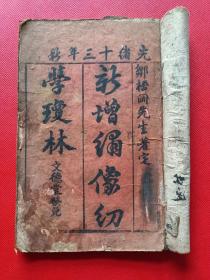 光緒十三年新
鄒梧岡先生着定
新增繡像幼
學瓊林
文德堂